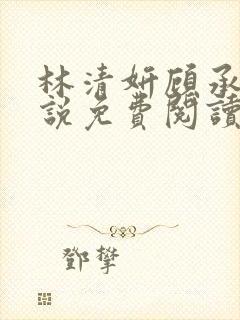 林清妍顾承
說免費閱讀
鄧攀